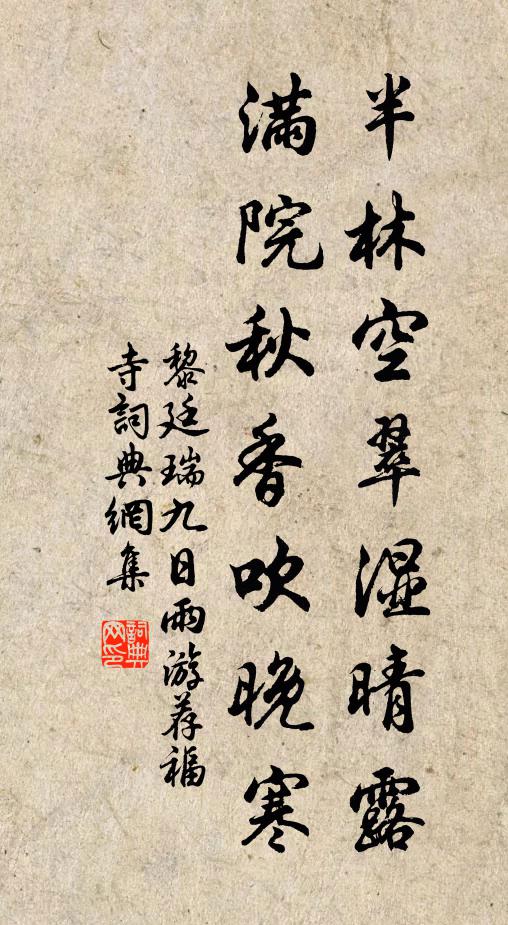 半林空翠湿晴露
满院秋香吹晚寒
黎廷瑞九日雨游荐福
寺詞典網集
詞典网印